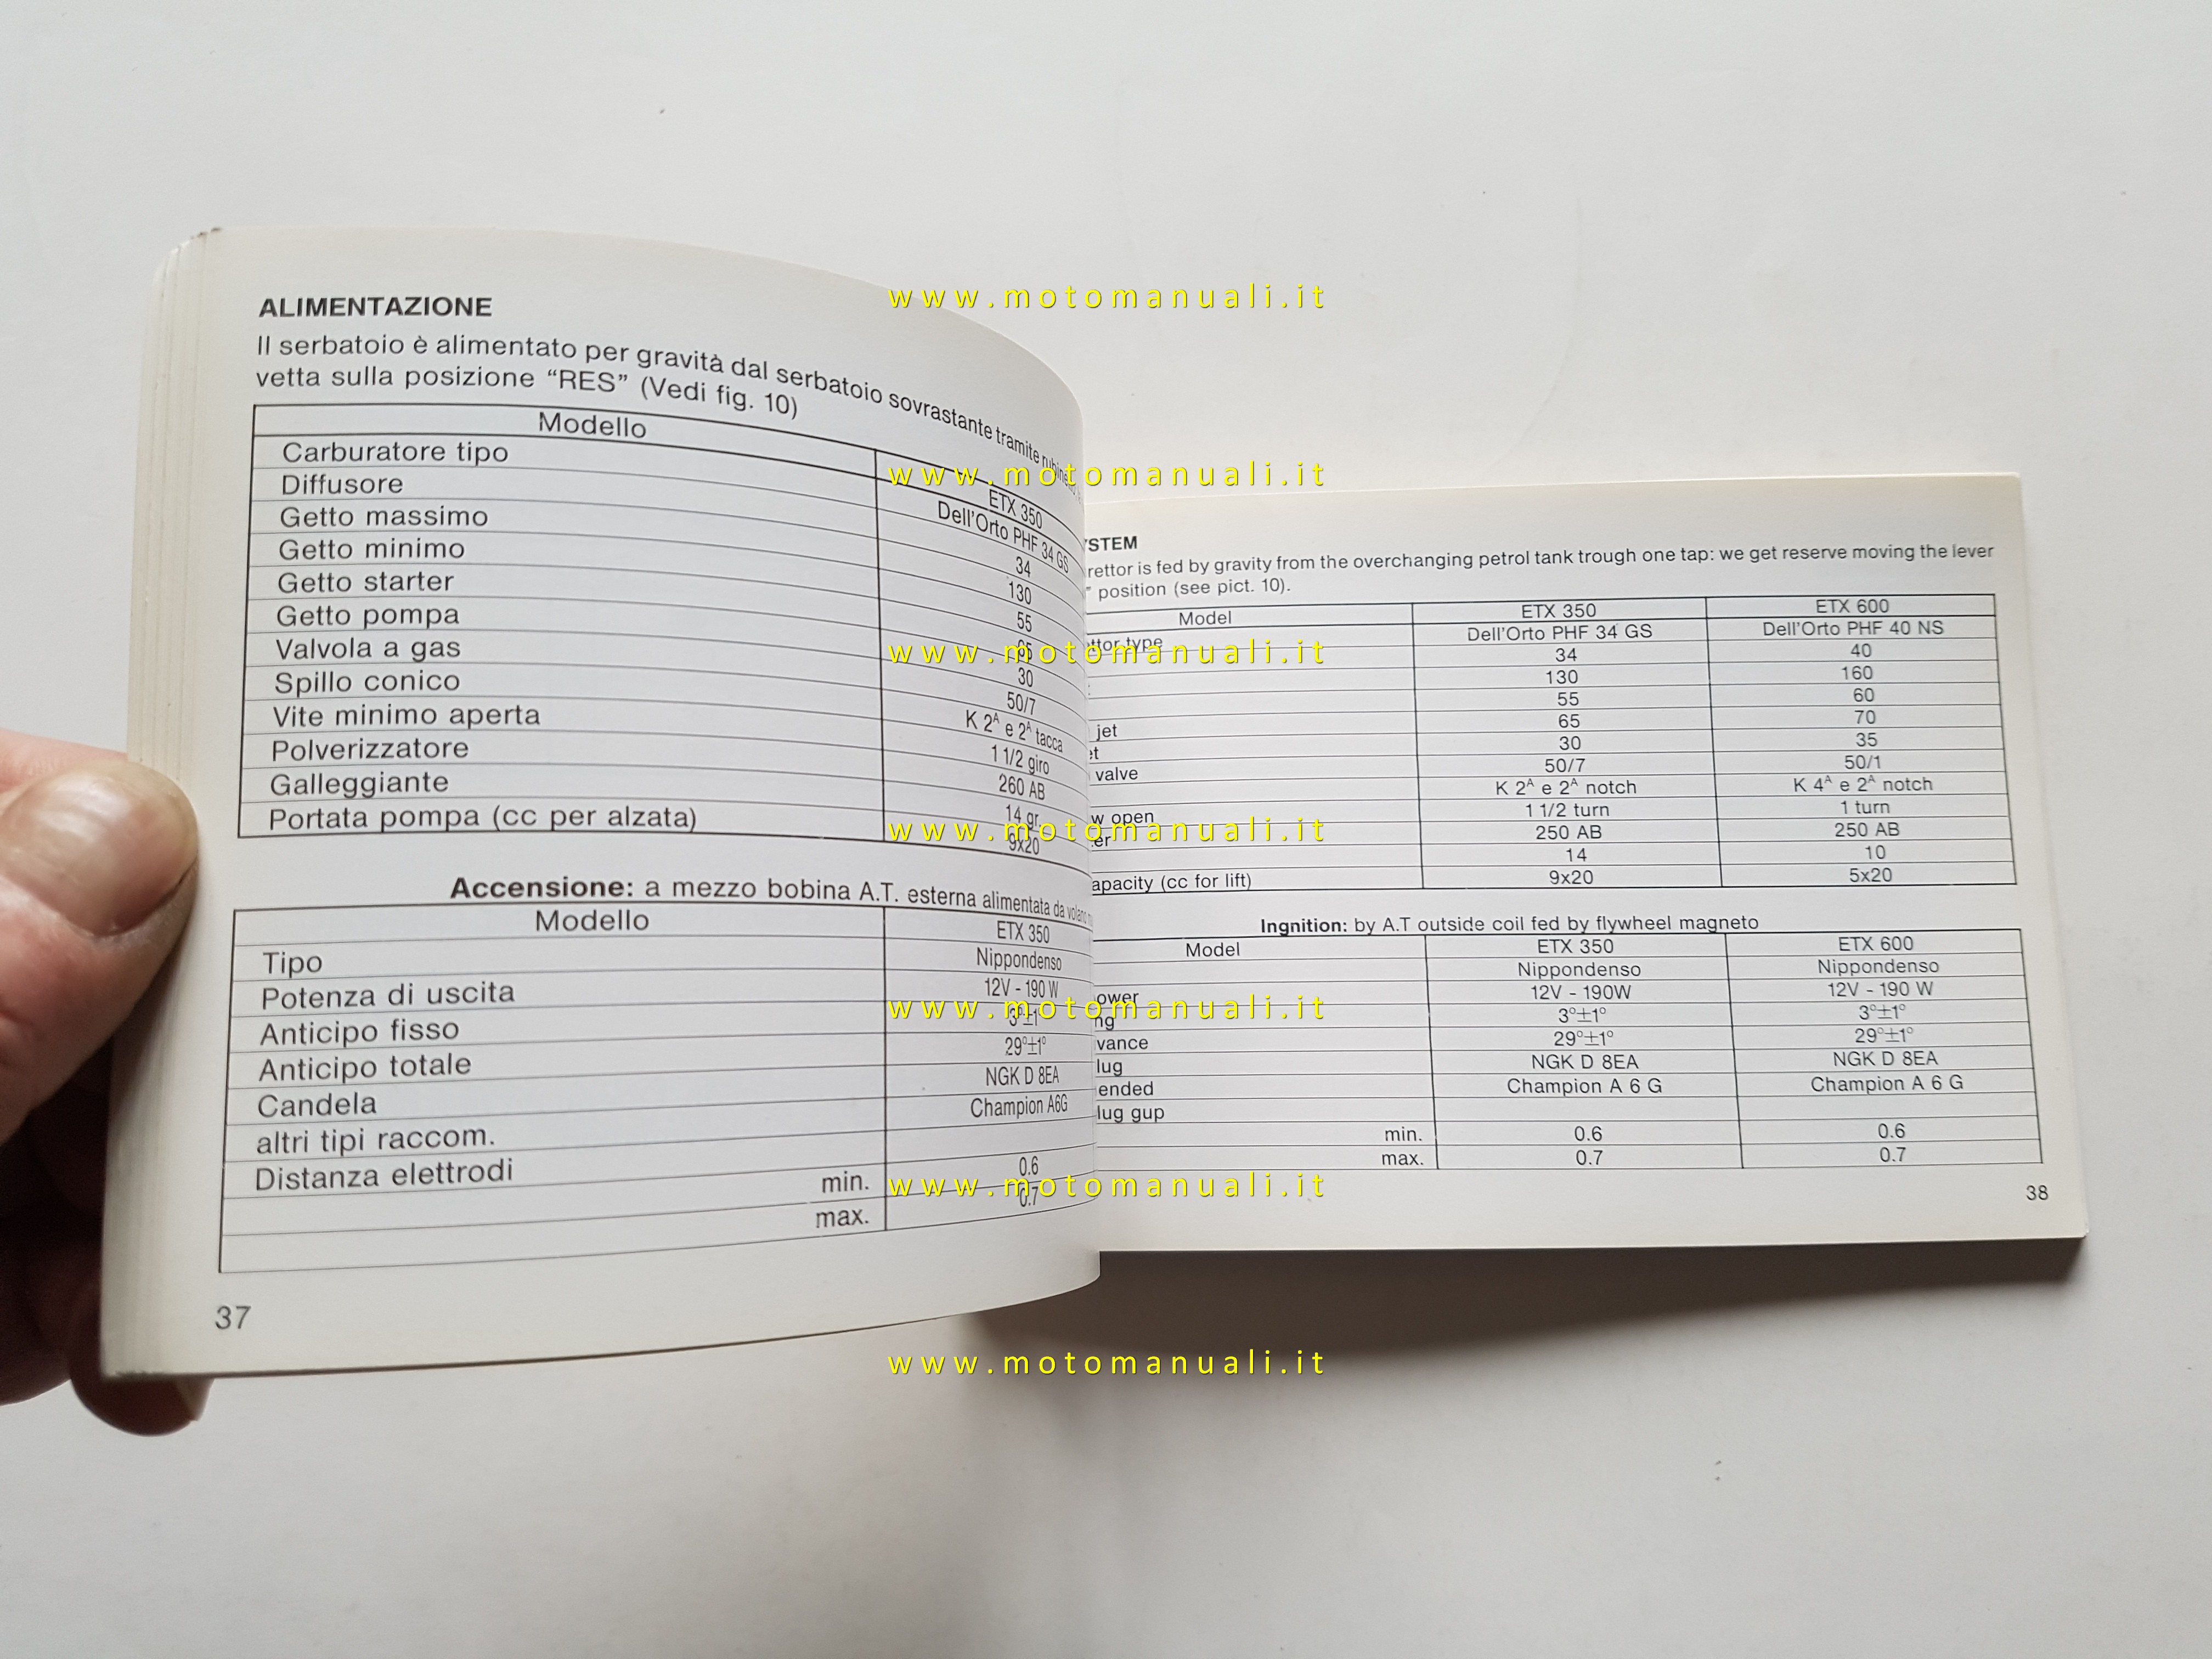 ALIMENTAZIONE
Il serbatoio è alimentato per gravità dal serbatoio sovrastante tramite
vetta sulla posizione “RES” (Vedi fig. 10)
Modello ETX 350
Carburatore tipo Dell'Orto PHF 34 GS
Diffusore 34
Getto massimo 130
Getto minimo 55
Getto starter
Getto pompa 30
Valvola a gas 50/7
Spillo conico K 2ᴬ e 2ᴬ tacca
Vite minimo aperta 1 1/2 giro
Polverizzatore 260 AB
Galleggiante 14 gr.
Portata pompa (cc per alzata) 9x20
Accensione: a mezzo bobina A.T. esterna alimentata da volano
Modello ETX 350
Tipo Nippondenso
Potenza di uscita 12V - 190 W
Anticipo fisso 3°±1°
Anticipo totale 29°±1°
Candela NGK D 8EA
altri tipi raccom. Champion A6G
Distanza elettrodi
min. 0.6
max. 0.7
37
YSTEM
rettor is fed by gravity from the overchanging petrol tank trough one tap: we get reserve moving the lever
” position (see pict. 10).
Model ETX 350 ETX 600
ttor type Dell'Orto PHF 34 GS Dell'Orto PHF 40 NS
34 40
130 160
55 60
jet 65 70
et 30 35
valve 50/7 50/1
K 2ᴬ e 2ᴬ notch K 4ᴬ e 2ᴬ notch
w open 1 1/2 turn 1 turn
er 250 AB 250 AB
14 10
apacity (cc for lift) 9x20 5x20
Ingnition: by A.T outside coil fed by flywheel magneto
Model ETX 350 ETX 600
Nippondenso Nippondenso
ower 12V - 190W 12V - 190 W
ng 3°±1° 3°±1°
vance 29°±1° 29°±1°
lug NGK D 8EA NGK D 8EA
ended Champion A 6 G Champion A 6 G
lug gup
min. 0.6 0.6
max. 0.7 0.7
38
www.motomanuali.it
www.motomanuali.it
www.motomanuali.it
www.motomanuali.it
www.motomanuali.it
www.motomanuali.it
www.motomanuali.it